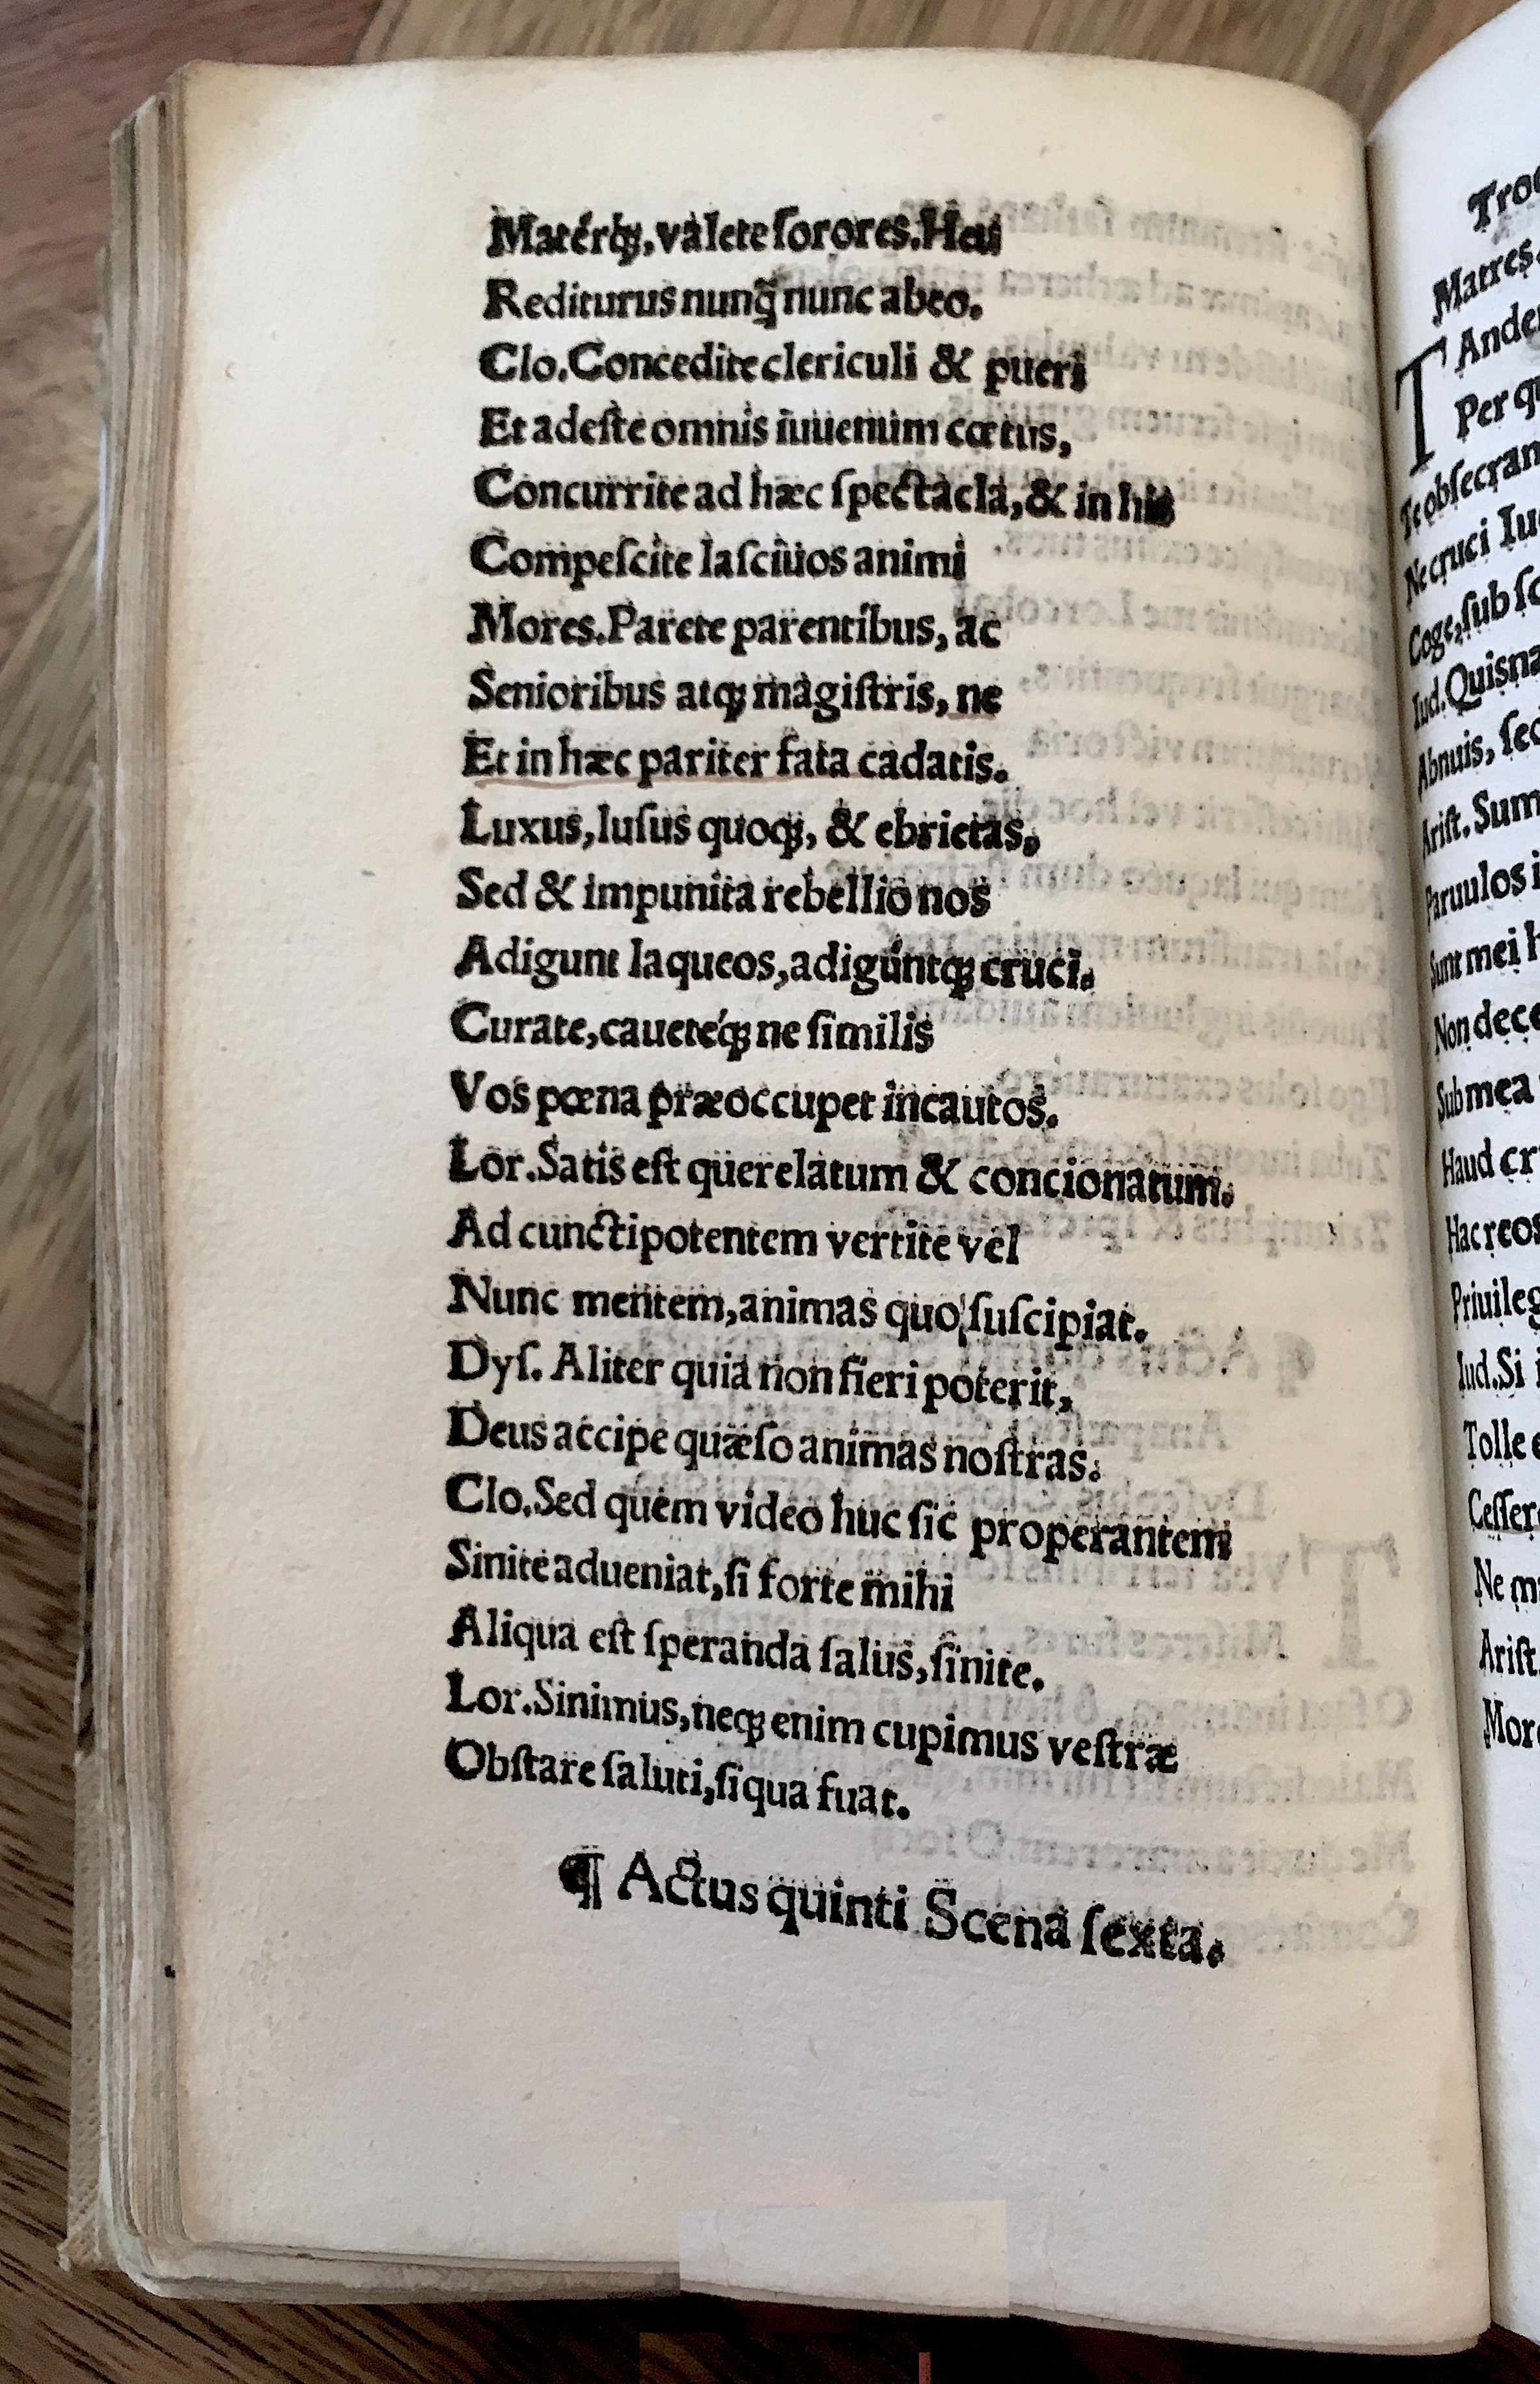 Matérq;, valete ſorores. Heu
Rediturus nunq̃ nunc abeo.
Clo. Concedite clericuli & pueri
Et adeſte omnis iuuenum cœtus,
Concurrite ad hæc ſpectacla, & in his
Compeſcite laſciuos animi
Mores. Parete parentibus, ac
Senioribus atq; magiſtris, ne
Et in hæc pariter fata cadatis.
Luxus, luſus quoq;, & ebrietas,
Sed & impunita rebellio nos
Adigunt laqueos, adigúntq; cruci.
Curate, caueteq́; ne ſimilis
Vos pœna præoccupet incautos.
Lor. Satis eſt querelatum & concionatum.
Ad cunctipotentem vertite vel
Nunc mentem, animas quo ſuſcipiat.
Dyſ. Aliter quia non fieri poterit,
Deus accipe quæſo animas noſtras.
Clo. Sed quem video huc ſic properantem
Sinite adueniat, ſi forte mihi
Aliqua eſt ſperanda ſalus, ſinite.
Lor. Sinimus, neq; enim cupimus veſtræ
Obſtare ſaluti, ſi qua fuat.
¶ Actus quinti Scena ſexta.
Matres.
T
Per
Te obſecran
Ne cruci Iu
Coge, ſub
Iud. Quisna
Abnuis, ſed
Ariſt. Sum
Paruulos i
Sunt mei
Non dece
Sub mea
Haud
Hac reos
Priuileg
Iud. Si
Tolle
Ceſſer
Ne
Ariſt.